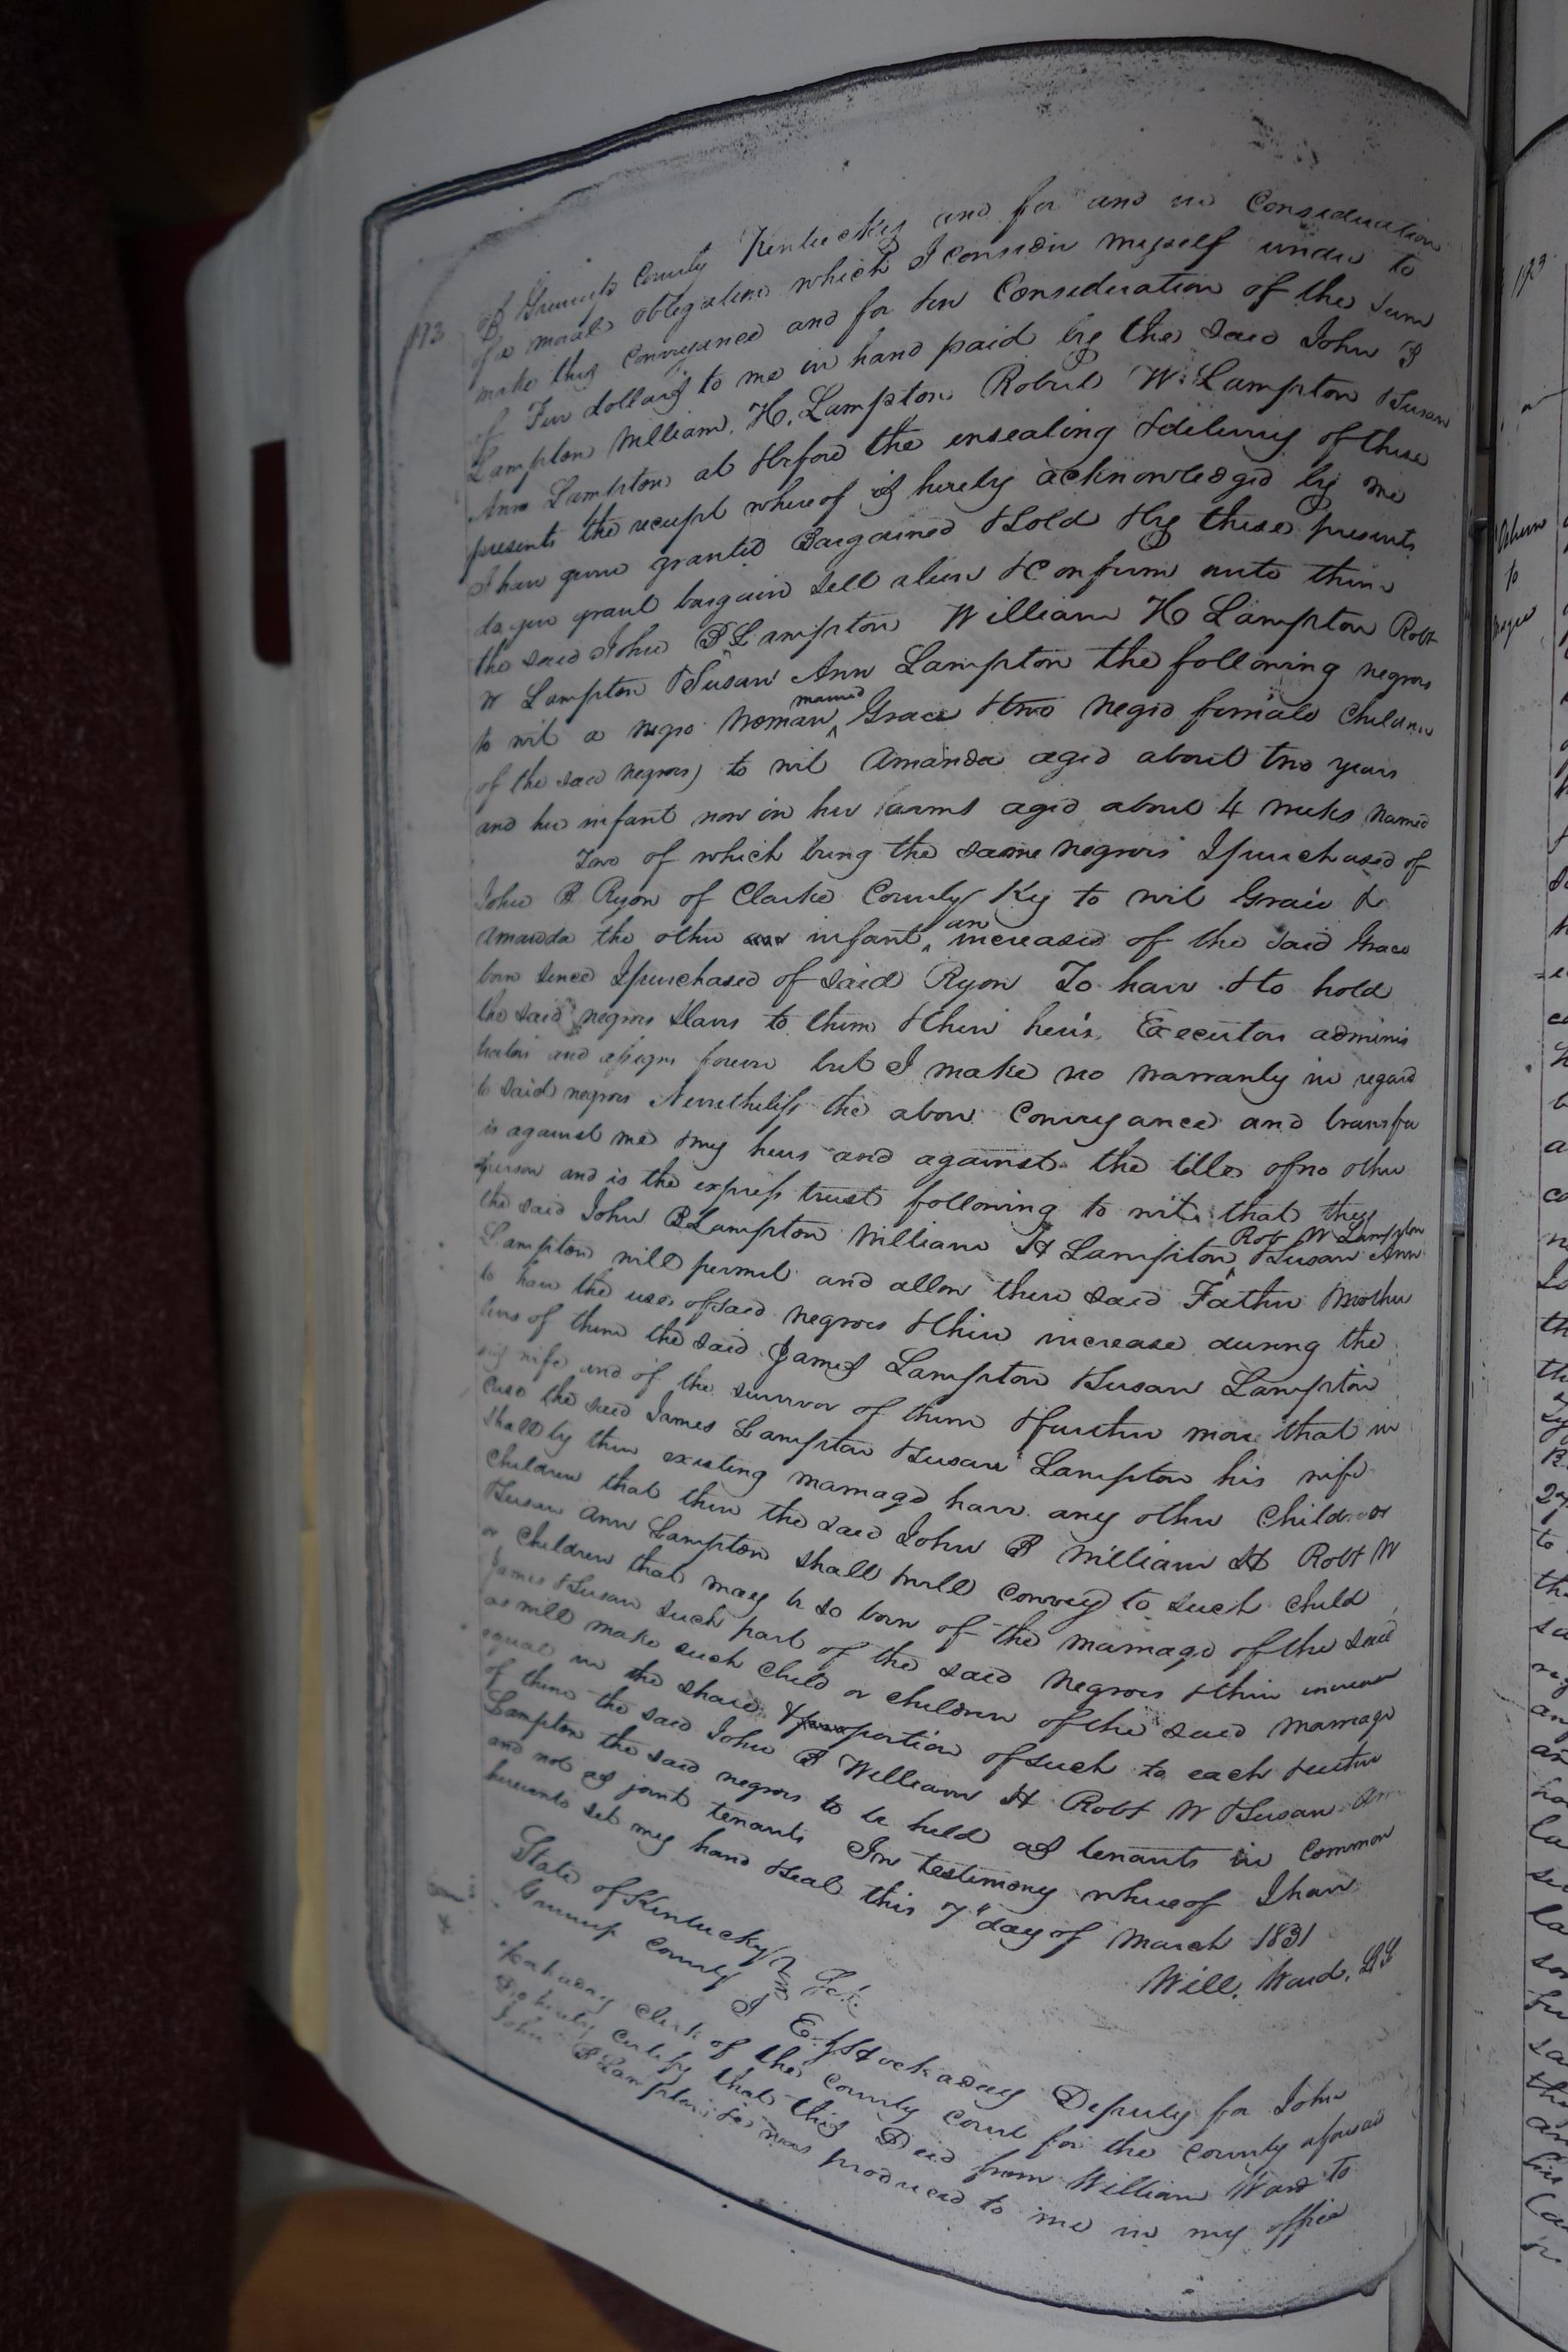 173
of Greenup County Kentucky and for and in Consideration
of a moral obligation which I consider myself under to
make this Conveyance and for the Consideration of the sum
of Five dollars to me in hand paid by the said John B
Lampton William. H. Lampton Robert W. Lampton &Susan
Ann Lampton at &before the ensealing &delivery of these
presents the receipt whereof is hereby acknowledged by me
I have given granted Bargained &Sold &by these presents
do give grant bargain Sell alien &Confirm unto them
the said John B Lampton William H Lampton Robt
W Lampton &Susan Ann Lampton the following negroes
to wit a negro Woman named Grace &two negro female children
of the said negroes) to wit Amanda aged about two years
and her infant now in her arms aged about 4 weeks named
Two of which being the same negroes I purchased of
John R Ryon of Clarke County Ky to wit Gracie &
Amanda the other infant, an increase of the said Grace
born since I purchased of said Ryon To have &to hold
the said negroes slaves to them &their heirs Executors adminis
trators and assigns forever but I make no warranty in regard
to said negroes Nevertheless the above Conveyance and transfer
is against me &my heirs and against the titles of no other
person and is the express trust following to wit: that they
the said John B Lampton William H Lampton Robt W Lampton &Susan Ann
Lampton will permit and allow there said Father &mother
to have the use of said negroes &their increase during the
lives of them the said James Lampton &Susan Lampton
his wife and of the survivor of them &further more that in
case the said James Lampton &Susan Lampton his wife
shall by their existing marriage have any other Child or
children that then the said John B William H Robt W
&Susan Ann Lampton shall &will convey to such child
or children that may be so born of the marriage of the said
James &Susan such part of the said negroes &their increase
as will make such child or children of the said marriage
equal in the share &portion of such to each &either
of them the said John B William H Robt W &Susan Ann
Lampton the said negroes to be held as tenants in Common
and not as joint tenants In testimony whereof I have
hereunto set my hand &seal this 7th day of March 1831
Will. Ward. LS
State of Kentucky
Greenup County Sct.
I E. Hockaday Deputy for John
Hockaday Clerk of the County Court for the County aforesaid
Do hereby certify that this Deed from William Ward to
John B Lampton &c was produced to me in my office
173
to